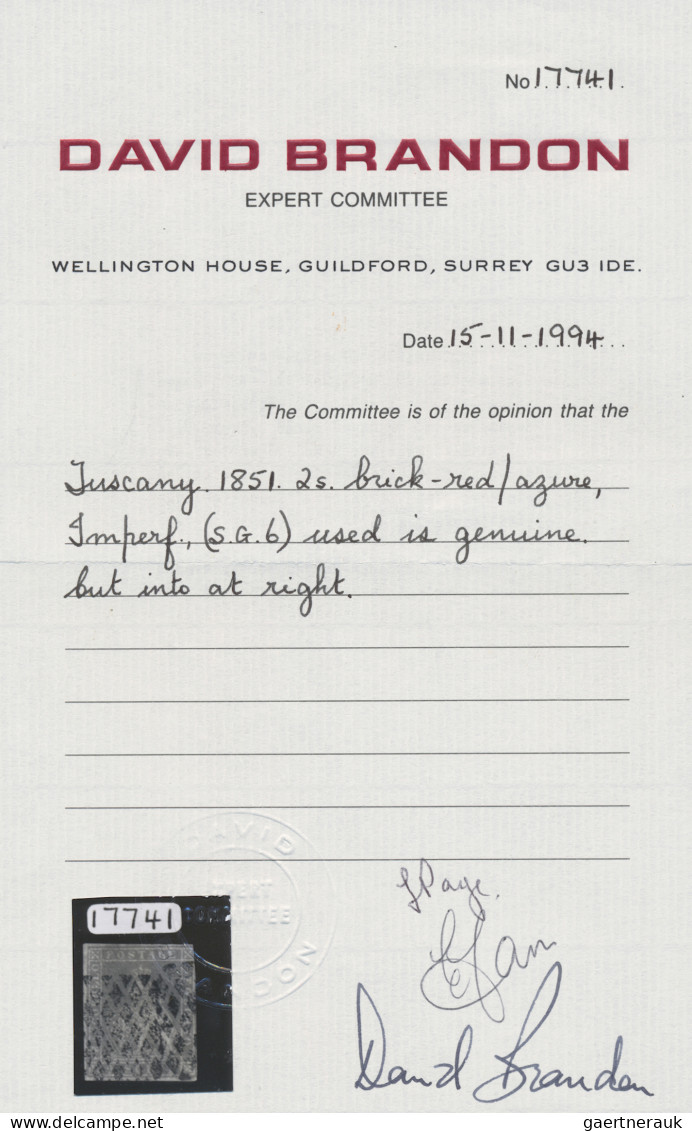 No 17741.
DAVID BRANDON
EXPERT COMMITTEE
WELLINGTON HOUSE, GUILDFORD, SURREY GU3 IDE.
Date 15-11-1994
The Committee is of the opinion that the
Tuscany. 1851. 2s. brick-red/azure,
Imperf., (S.G. 6) used is genuine.
but into at right.
DAVID
EXPERT
COMMITTEE
BRANDON
17741
POSTALE
David Brandon
gaertnerauk